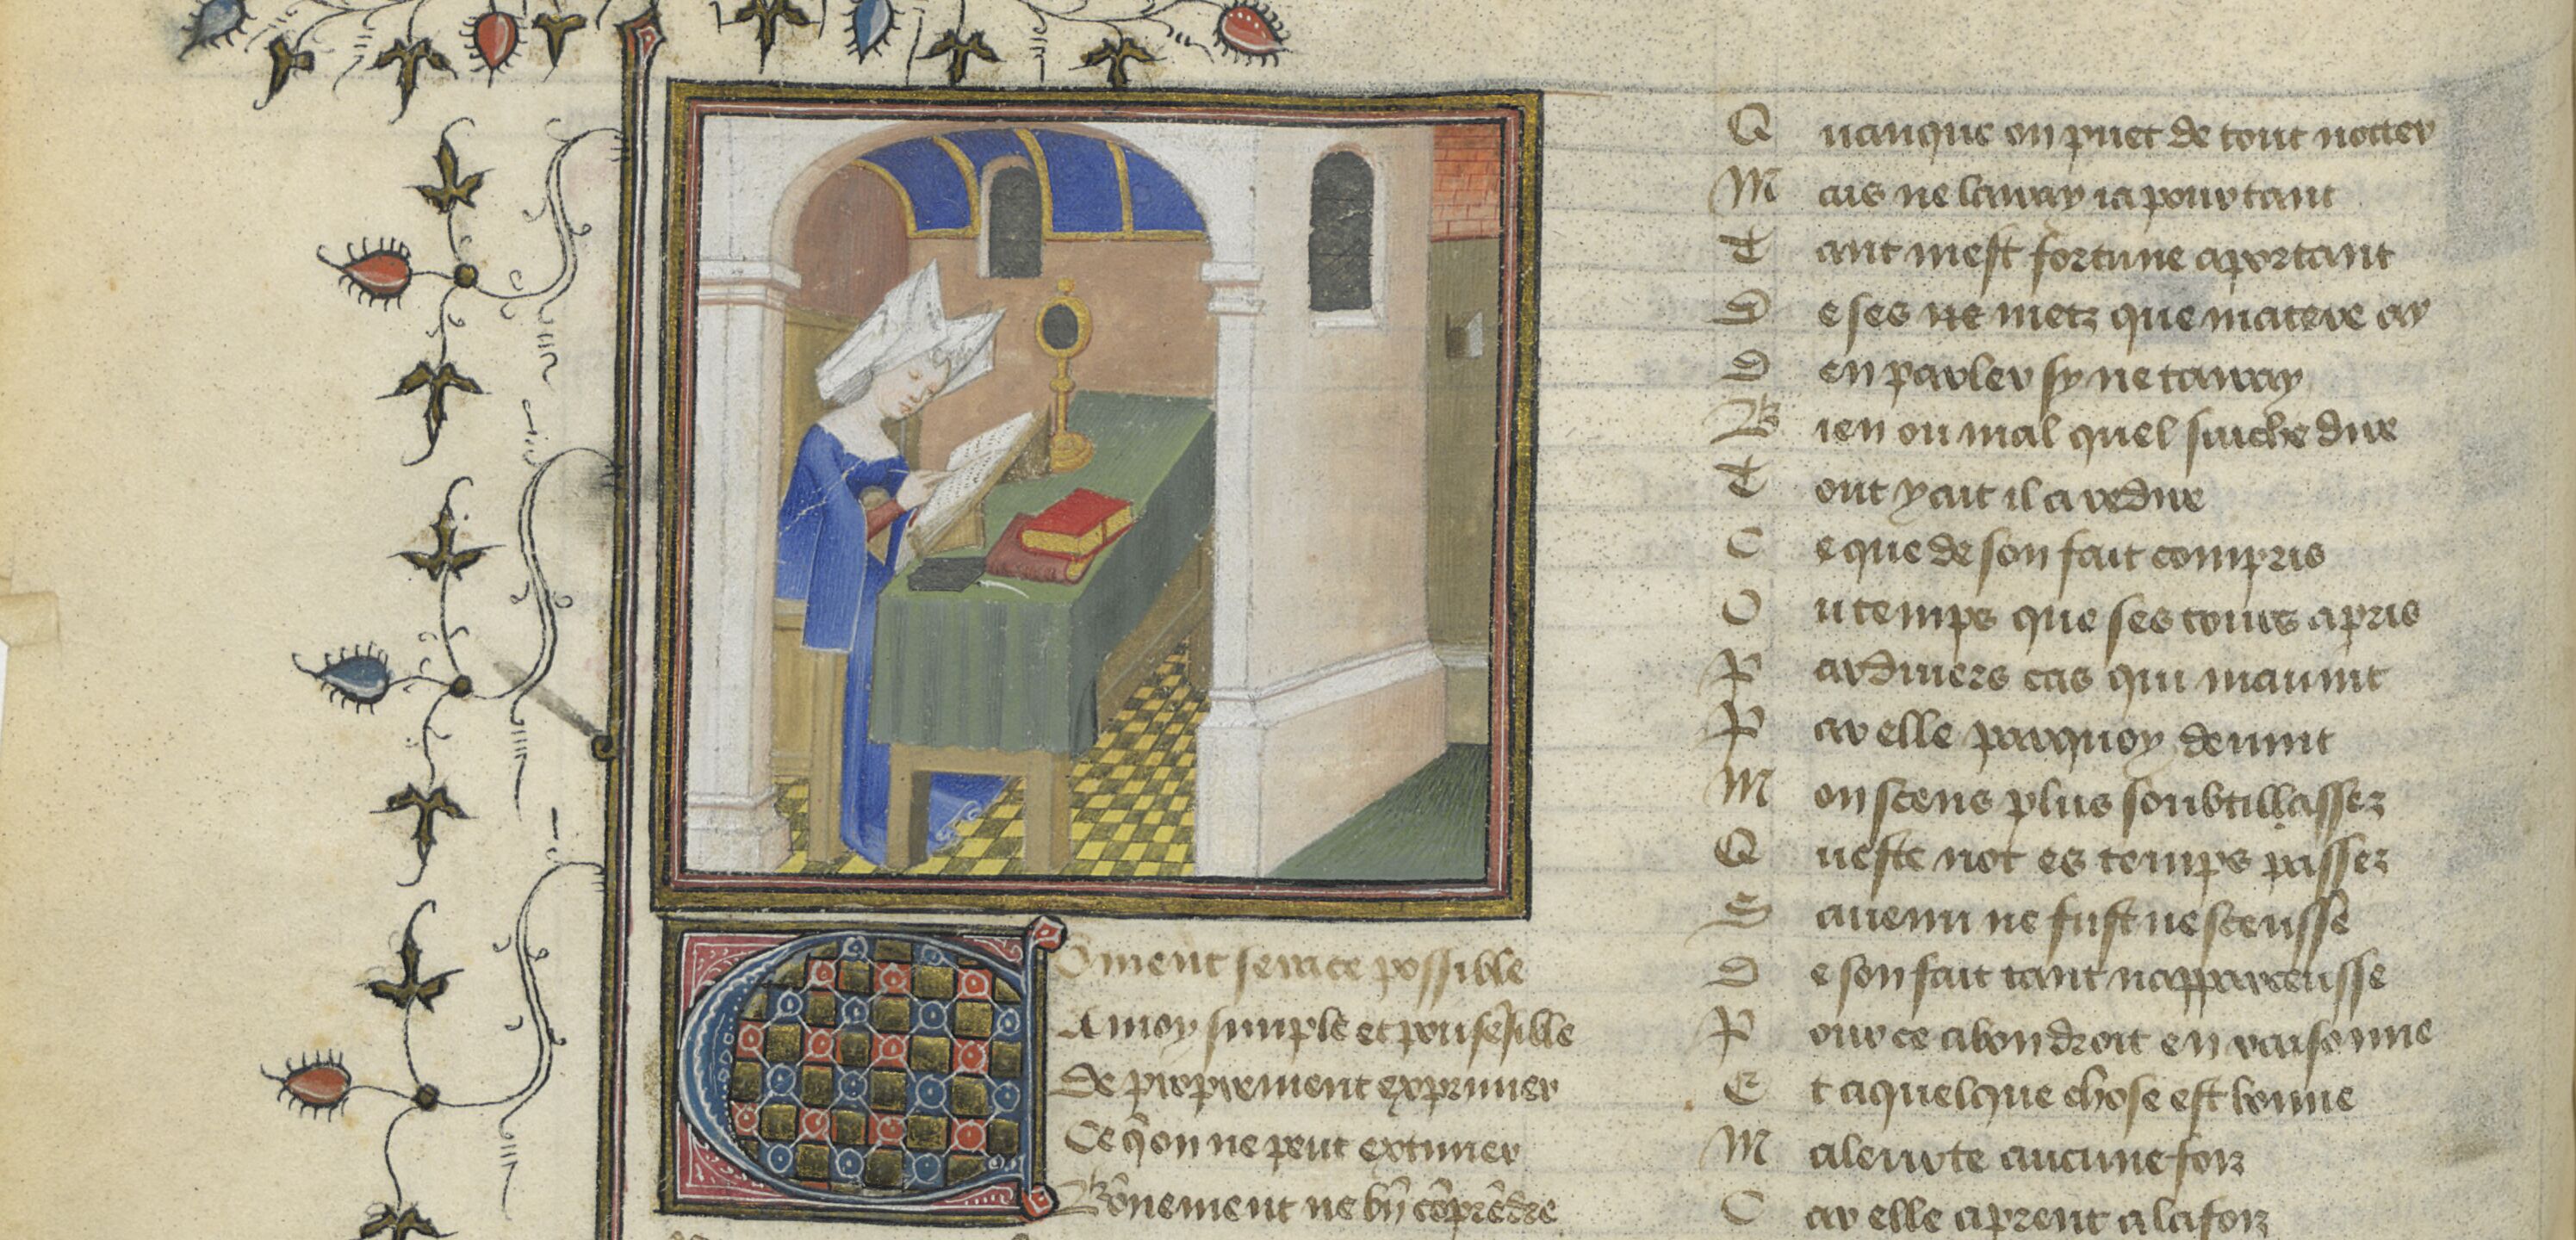 Coment sera ce possible
A moy simple et pou sesible
De proprement exprimer
Ce q̃ on ne peut extimer
Bõnement ne bñ cõprẽdre
Quanque on puet de tout notter
Mais ne lairay ia pour tant
Tant mest fortune aportant
De ses ne metz que matere ay
Den parler sy ne tairay
Bien ou mal quel suiche dire
Tout y ait il a redire
Ce que de son fait compris
Ou temps que ses tours apris
Par diuers cas qui mauint
Par elle parquoy deuint
Mon scens plus soubtill assez
Queste not es temps passez
Sauenu ne fust ne sceusse
De son fait tant napparceusse
Pour ce a bon droit en raisonne
Et a quelque chose est bonne
Maleurte aucune foiz
Car elle aprent a la foiz